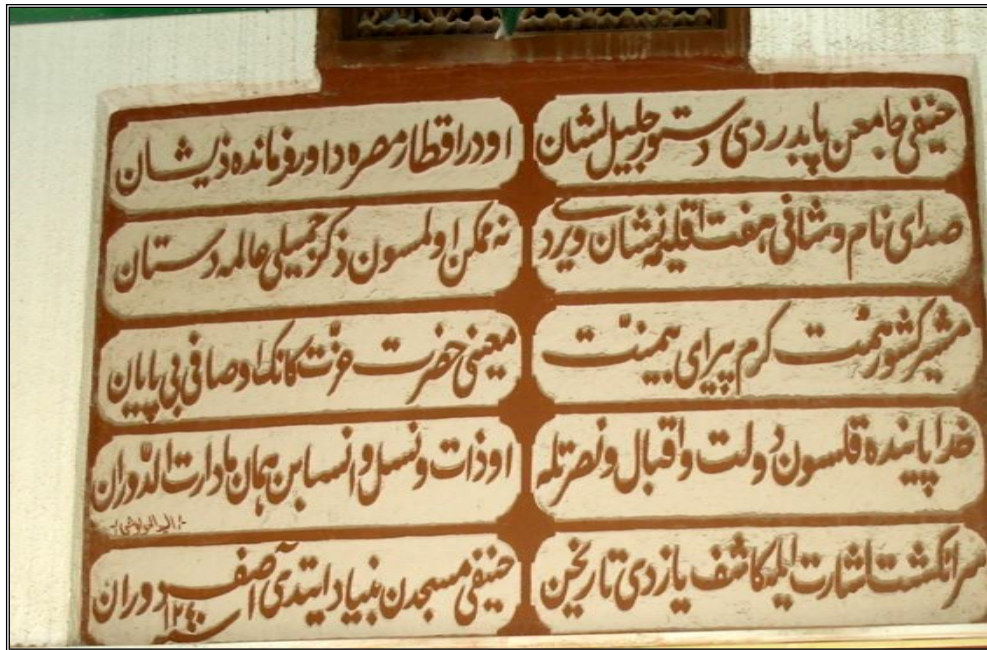 حنیفی جامعن یاپدردی دستور جلیل لشان
اودر اقطار مصره داور فرمانده ذیشان
صدای نام وشانی هفت اقلیمه نشان ویردی
نه ممکن اولمسون ذکر جمیلی عالمه دستان
مشیر کشور همت کرم پیرای بیمنّت
معینی حضرت عزّت کانک اوصافی بی پایان
خدا پاینده قلسون دولت واقبال ونصرتله
اوذات ونسل وانسابن همان مادارت الدّوران
سرانکشت اشارت ایله کاشف یازدی تاریخن
حنیفی مسجدن بنیاد ایتدی آصف دوران
١٢٤٠